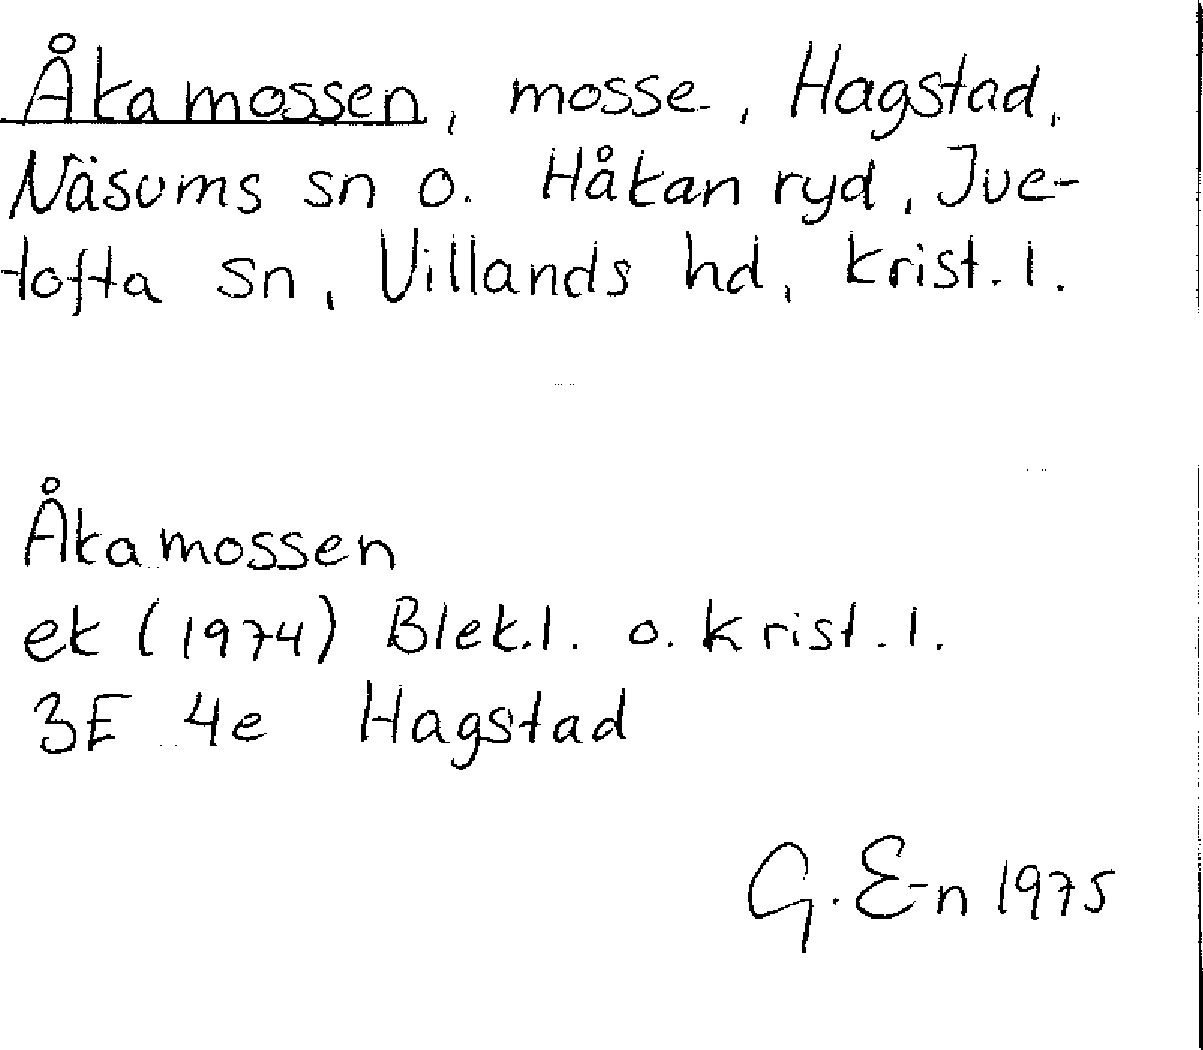 Åkamossen, mosse, Hagstad,
Näsums sn o. Håkanryd, Ive-
tofta sn, Villands hd, Krist. l.
Åkamossen
ek (1974) Blek.l. o. Krist. l.
3E 4e Hagstad
G. E-n 1975